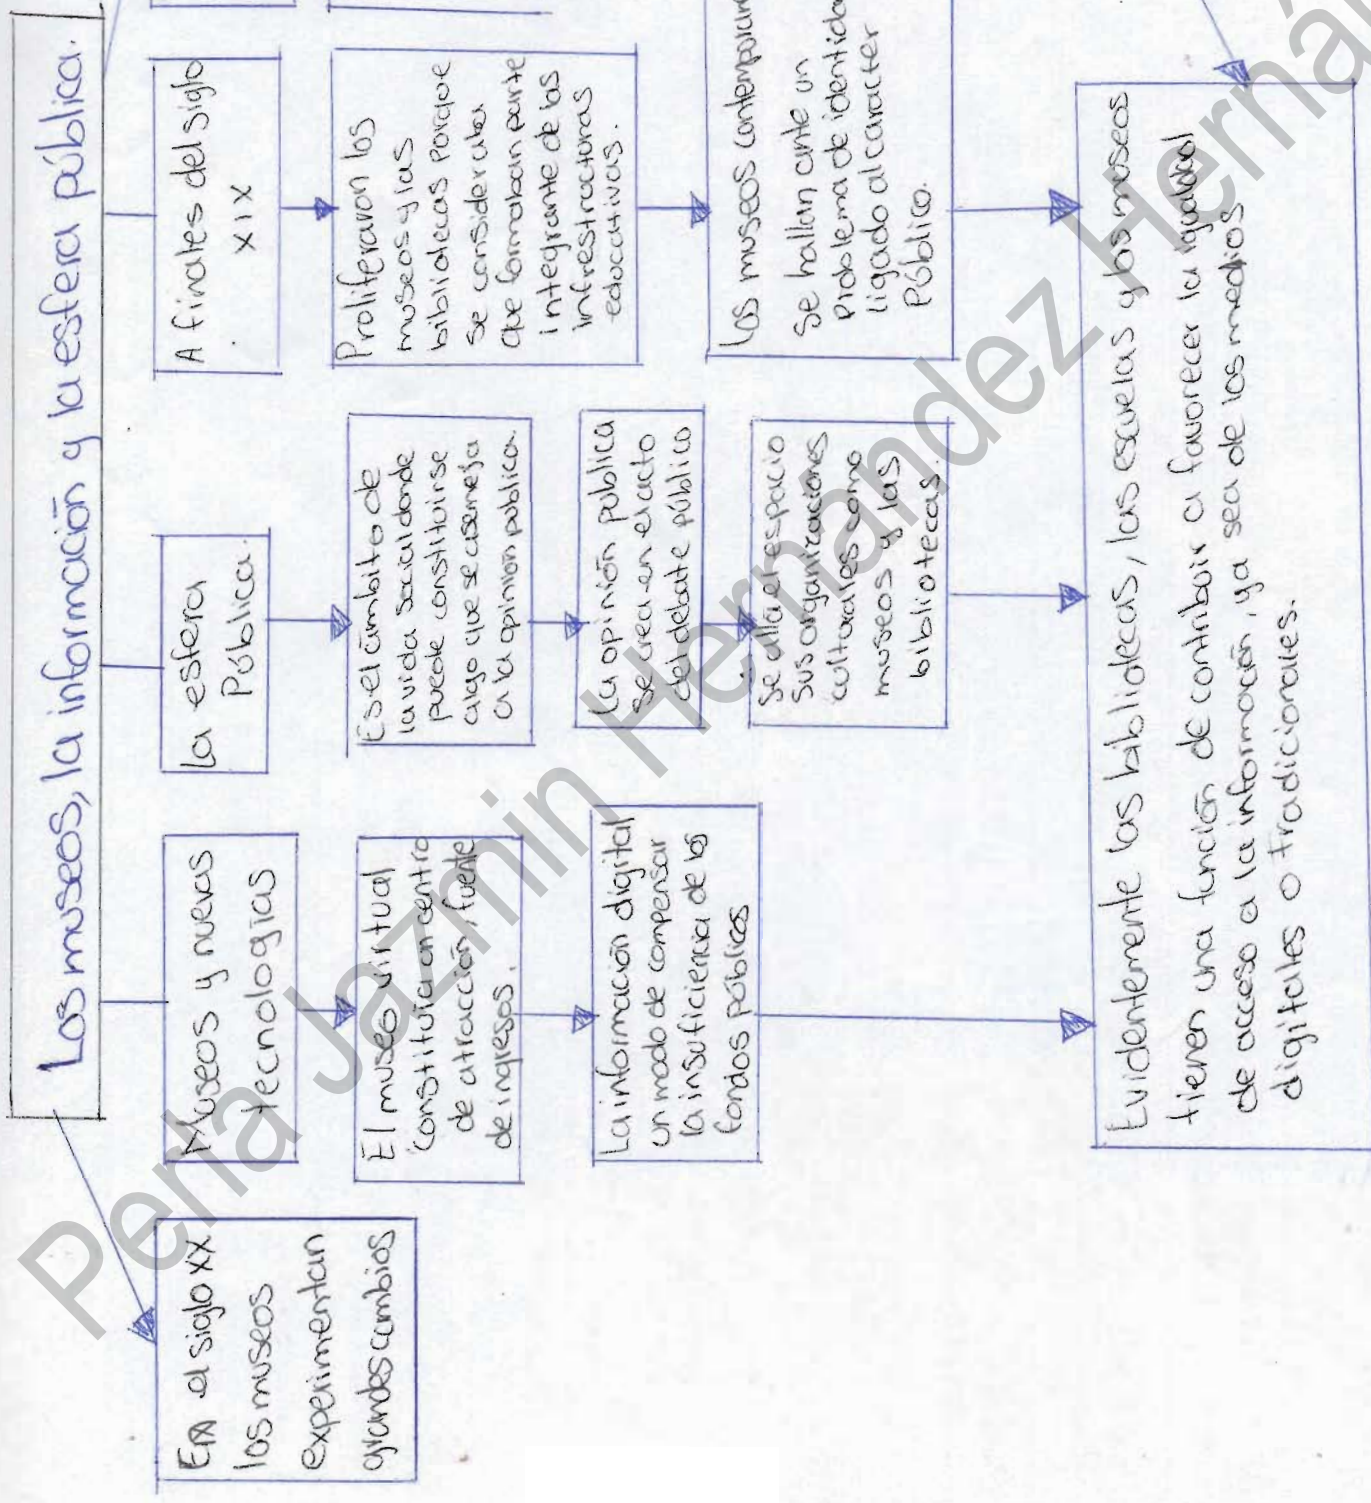 Los museos, la información y la esfera pública.
En el siglo XX
los museos
experimentan
grandes cambios
Museos y nuevas
tecnologias
El museo virtual
Constituía un centro
de atracción, fuente
de ingresos.
La información digital
un modo de compensar
la insuficiencia de los
fondos públicos
La esfera
Pública.
Es el ámbito de
la vida social donde
puede constituirse
algo que se asemeja
a la opinion publica.
La opinión publica
Se crea en el acto
del debate público
Se alla el espacio
Sus organizaciones
culturales como
museos y las
bibliotecas.
A finales del siglo
XIX
Proliferaron los
museos y las
bibliotecas porque
se consideraba
que formaban parte
integrante de las
infrestructuras
educativas.
Los museos
Se hallan ante un
Problema de
ligado al caracter
Público.
Evidentemente las bibliotecas, las escuelas y los museos
tienen una función de contribuir a favorecer la igualdad
de acceso a la información, ya sea de los medios
digitales o tradicionales.
Perla Jazmin Hernández